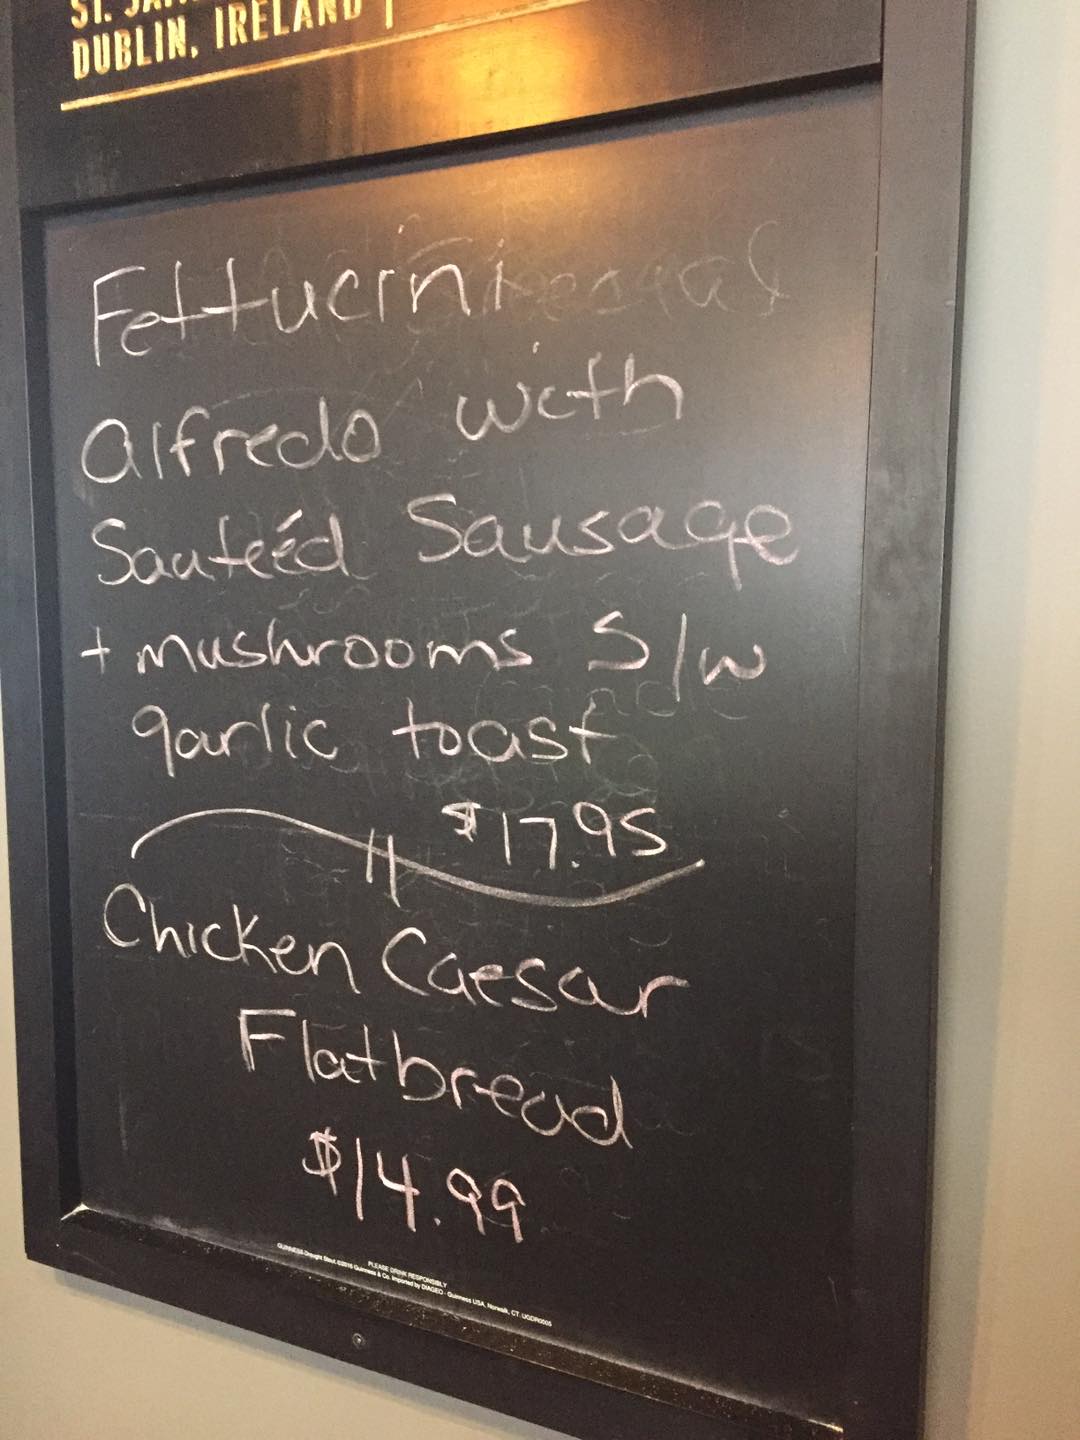 ST. JAM
DUBLIN, IRELAND |
Fettucini
alfredo with
Sauteéd Sausage
+ mushrooms S/w
garlic toast
$17.95
Chicken Caesar
Flatbread
$14.99
PLEASE DRINK RESPONSIBLY
GUINNESS Draught Stout ©2015 Guinness & Co. Imported by DIAGEO - Guinness USA, Norwalk, CT.